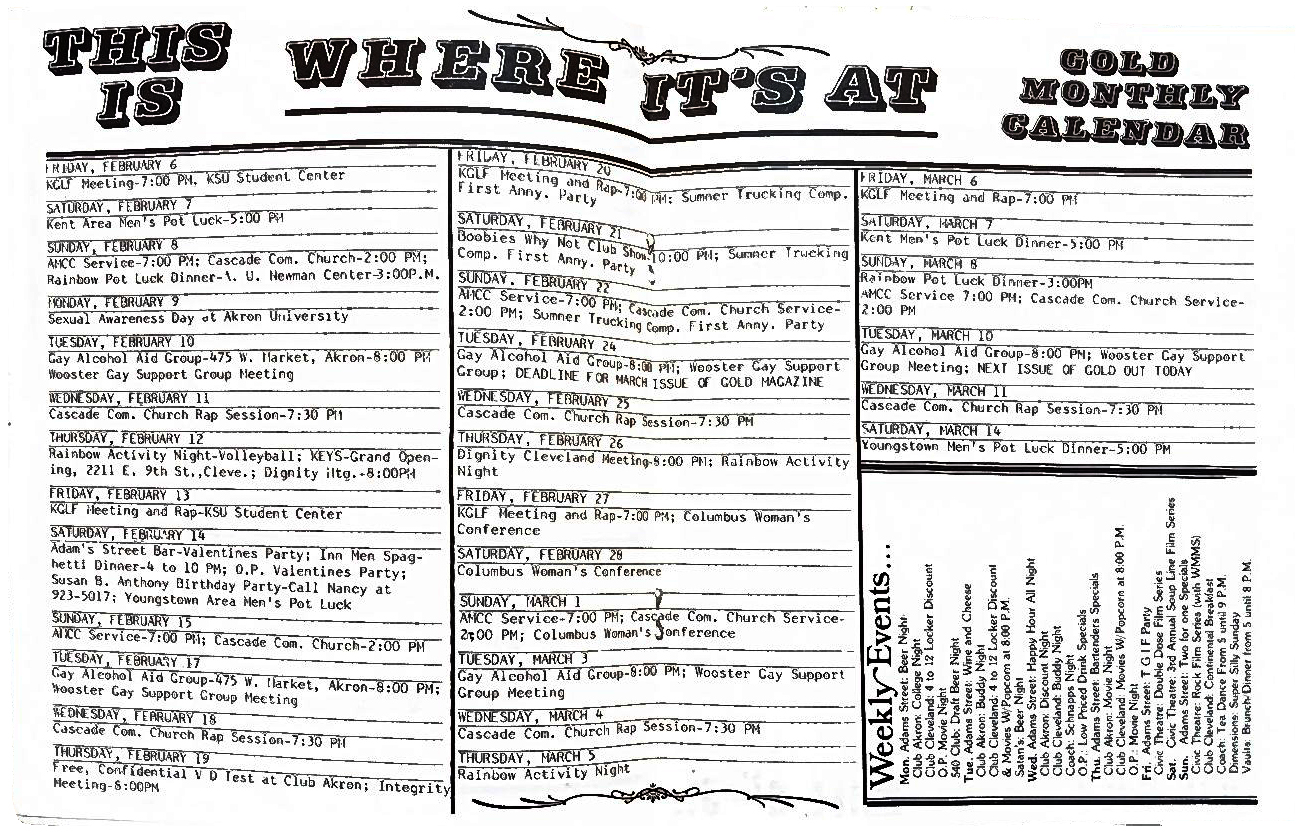 THIS IS WHERE IT'S AT
GOLD
MONTHLY
CALENDAR
FRIDAY, FEBRUARY 6
KGLF Meeting-7:00 PM. KSU Student Center
SATURDAY, FEBRUARY 7
Kent Area Men's Pot Luck-5:00 PM
SUNDAY, FEBRUARY 8
AMCC Service-7:00 PM; Cascade Com. Church-2:00 PM;
Rainbow Pot Luck Dinner-A. U. Newman Center-3:00P.M.
MONDAY, FEBRUARY 9
Sexual Awareness Day at Akron University
TUESDAY, FEBRUARY 10
Gay Alcohol Aid Group-475 W. Market, Akron-8:00 PM
Wooster Gay Support Group Meeting
WEDNESDAY, FEBRUARY 11
Cascade Com. Church Rap Session-7:30 PM
THURSDAY, FEBRUARY 12
Rainbow Activity Night-Volleyball; KEYS-Grand Open-
ing, 2211 E. 9th St.,Cleve.; Dignity Mtg.-8:00PM
FRIDAY, FEBRUARY 13
KGLF Meeting and Rap-KSU Student Center
SATURDAY, FEBRUARY 14
Adam's Street Bar-Valentines Party; Inn Men Spag-
hetti Dinner-4 to 10 PM; O.P. Valentines Party;
Susan B. Anthony Birthday Party-Call Nancy at
923-5017; Youngstown Area Men's Pot Luck
SUNDAY, FEBRUARY 15
AMCC Service-7:00 PM; Cascade Com. Church-2:00 PM
TUESDAY, FEBRUARY 17
Gay Alcohol Aid Group-475 W. Market, Akron-8:00 PM;
Wooster Gay Support Group Meeting
WEDNESDAY, FEBRUARY 18
Cascade Com. Church Rap Session-7:30 PM
THURSDAY, FEBRUARY 19
Free, Confidential V D Test at Club Akron; Integrity
Meeting-8:00PM
FRIDAY, FEBRUARY 20
KGLF Meeting and Rap-7:00 PM; Summer Trucking Comp.
First Anny. Party
SATURDAY, FEBRUARY 21
Boobies Why Not Club Show-10:00 PM; Summer Trucking
Comp. First Anny. Party
SUNDAY, FEBRUARY 22
AMCC Service-7:00 PM; Cascade Com. Church Service-
2:00 PM; Summer Trucking Comp. First Anny. Party
TUESDAY, FEBRUARY 24
Gay Alcohol Aid Group-8:00 PM; Wooster Gay Support
Group; DEADLINE FOR MARCH ISSUE OF GOLD MAGAZINE
WEDNESDAY, FEBRUARY 25
Cascade Com. Church Rap Session-7:30 PM
THURSDAY, FEBRUARY 26
Dignity Cleveland Meeting-8:00 PM; Rainbow Activity
Night
FRIDAY, FEBRUARY 27
KGLF Meeting and Rap-7:00 PM; Columbus Woman's
Conference
SATURDAY, FEBRUARY 28
Columbus Woman's Conference
SUNDAY, MARCH 1
AMCC Service-7:00 PM; Cascade Com. Church Service-
2:00 PM; Columbus Woman's Conference
TUESDAY, MARCH 3
Gay Alcohol Aid Group-8:00 PM; Wooster Gay Support
Group Meeting
WEDNESDAY, MARCH 4
Cascade Com. Church Rap Session-7:30 PM
THURSDAY, MARCH 5
Rainbow Activity Night
FRIDAY, MARCH 6
KGLF Meeting and Rap-7:00 PM
SATURDAY, MARCH 7
Kent Men's Pot Luck Dinner-5:00 PM
SUNDAY, MARCH 8
Rainbow Pot Luck Dinner-3:00PM
AMCC Service 7:00 PM; Cascade Com. Church Service-
2:00 PM
TUESDAY, MARCH 10
Gay Alcohol Aid Group-8:00 PM; Wooster Gay Support
Group Meeting; NEXT ISSUE OF GOLD OUT TODAY
WEDNESDAY, MARCH 11
Cascade Com. Church Rap Session-7:30 PM
SATURDAY, MARCH 14
Youngstown Men's Pot Luck Dinner-5:00 PM
Weekly Events...
Mon. Adams Street: Beer Night
Club Akron: College Night
Club Cleveland: 4 to 12 Locker Discount
O.P. Movie Night
540 Club: Draft Beer Night
Tue. Adams Street: Wine and Cheese
Club Akron: Buddy Night
Club Cleveland: 4 to 12 Locker Discount
& Movies W/Popcorn at 8:00 P.M.
Satan's: Beer Night
Wed. Adams Street: Happy Hour All Night
Club Akron: Discount Night
Club Cleveland: Buddy Night
Coach: Schnapps Night
O.P.: Low Priced Drink Specials
Thu. Adams Street: Bartenders Specials
Club Akron: Movie Night
Club Cleveland: Movies W/Popcorn at 8:00 P.M.
O.P.: Movie Night
Fri. Adams Street: T G I F Party
Civic Theatre: Double Dose Film Series
Sat. Civic Theatre: 3rd Annual Soup Line Film Series
Sun. Adams Street: Two for one Specials
Civic Theatre: Rock Film Series (with WMMS)
Club Cleveland: Continental Breakfast
Coach: Tea Dance From 5 until 9 P.M.
Dimensions: Super Silly Sunday
Vaults: Brunch/Dinner from 5 until 8 P.M.